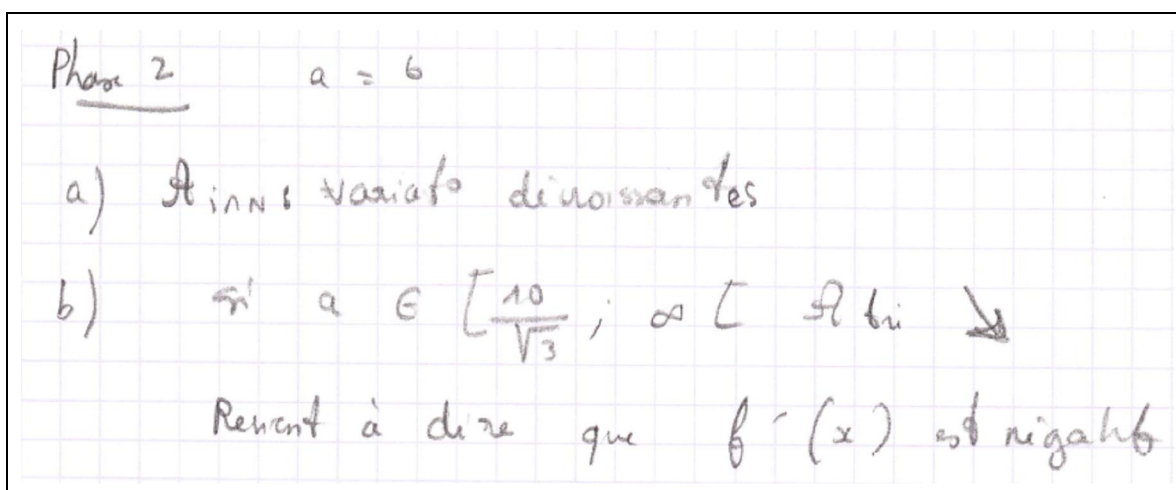 Phase 2 a = 6
a) variat° décroissantes
b) si a ∈ [10/√3 ; ∞[ A tri ↘
Revient à dire que f'(x) est négatif